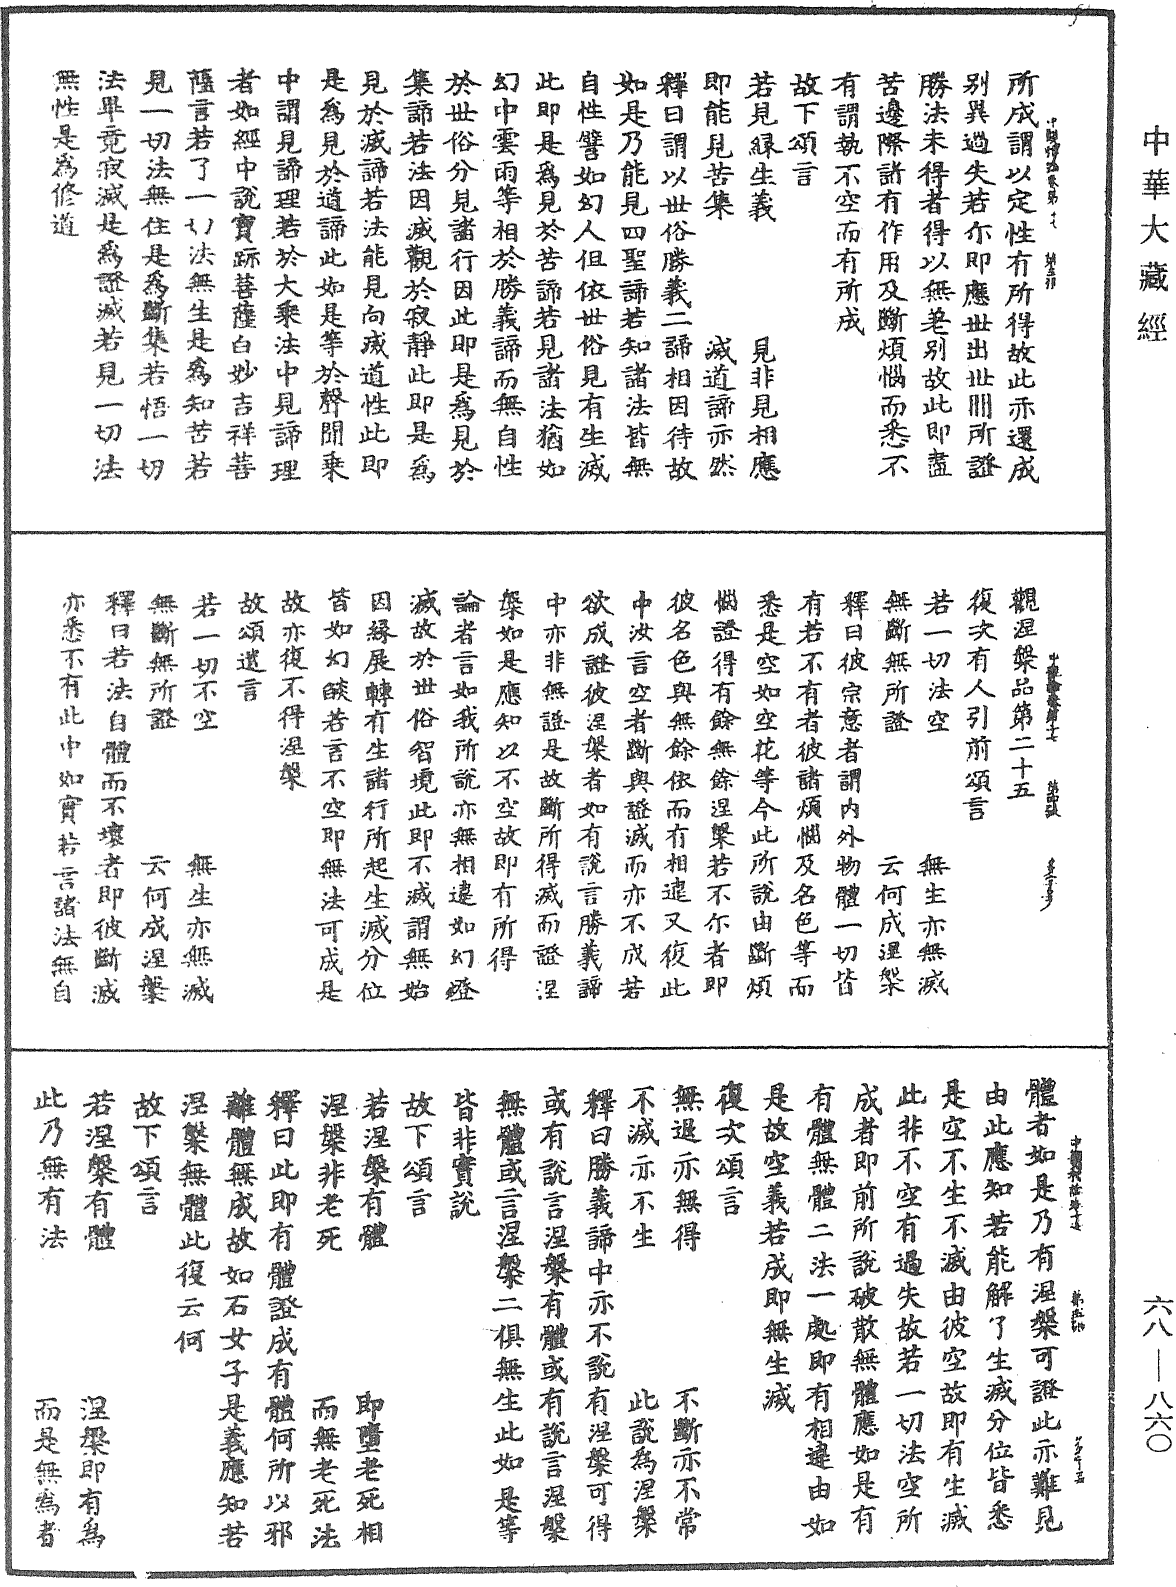 中華大藏經
所成謂以定性有所得故此亦還成
别異過失若尒即應世出世間所證
勝法未得者得以無差别故此即盡
苦邊際諸有作用及斷煩惱而悉不
有謂執不空而有所成
故下頌言
若見緣生義　見非見相應
即能見苦集　滅道諦亦然
釋曰謂以世俗勝義二諦相因待故
如是乃能見四聖諦若知諸法皆無
自性譬如幻人但依世俗見有生滅
此即是爲見於苦諦若見諸法猶如
幻中雲雨等相於勝義諦而無自性
於世俗分見諸行因此即是爲見於
集諦若法因滅觀於寂靜此即是爲
見於滅諦若法能見向滅道性此即
是爲見於道諦此如是等於聲聞乘
中謂見諦理若於大乘法中見諦理
者如經中說寶跡菩薩白妙吉祥菩
薩言若了一切法無生是爲知苦若
見一切法無住是爲斷集若悟一切
法畢竟寂滅是爲證滅若見一切法
無性是爲修道
觀涅槃品第二十五
復次有人引前頌言
若一切法空　無生亦無滅
無斷無所證　云何成涅槃
釋曰彼宗意者謂内外物體一切皆
有若不有者彼諸煩惱及名色等而
悉是空如空花等今此所說由斷煩
惱證得有餘無餘涅槃若不尒者即
彼名色與無餘依而有相違又復此
中汝言空者斷與證滅而亦不成若
欲成證彼涅槃者如有說言勝義諦
中亦非無證是故斷所得滅而證涅
槃如是應知以不空故即有所得
論者言如我所說亦無相違如幻燈
滅故於世俗智境此即不滅謂無始
因緣展轉有生諸行所起生滅分位
皆如幻燄若言不空即無法可成是
故亦復不得涅槃
故頌遣言
若一切不空　無生亦無滅
無斷無所證　云何成涅槃
釋曰若法自體而不壞者即彼斷滅
亦悉不有此中如實若言諸法無自
體者如是乃有涅槃可證此亦難見
由此應知若能解了生滅分位皆悉
是空不生不滅由彼空故即有生滅
此非不空有過失故若一切法空所
成者即前所說破散無體應如是有
有體無體二法一處即有相違由如
是故空義若成即無生滅
復次頌言
無退亦無得　不斷亦不常
不滅亦不生　此說爲涅槃
釋曰勝義諦中亦不說有涅槃可得
或有說言涅槃有體或有說言涅槃
無體或言涅槃二俱無生此如是等
皆非實說
故下頌言
若涅槃有體　即墮老死相
涅槃非老死　而無老死法
釋曰此即有體證成有體何所以邪
離體無成故如石女子是義應知若
涅槃無體此復云何
故下頌言
若涅槃有體　涅槃即有爲
此乃無有法　而是無爲者
六八—八六〇